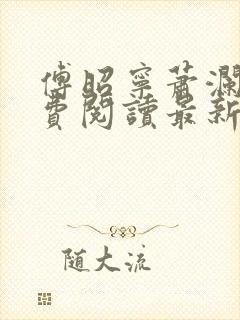 傅昭寧蕭瀾
費閱讀最新
随大流